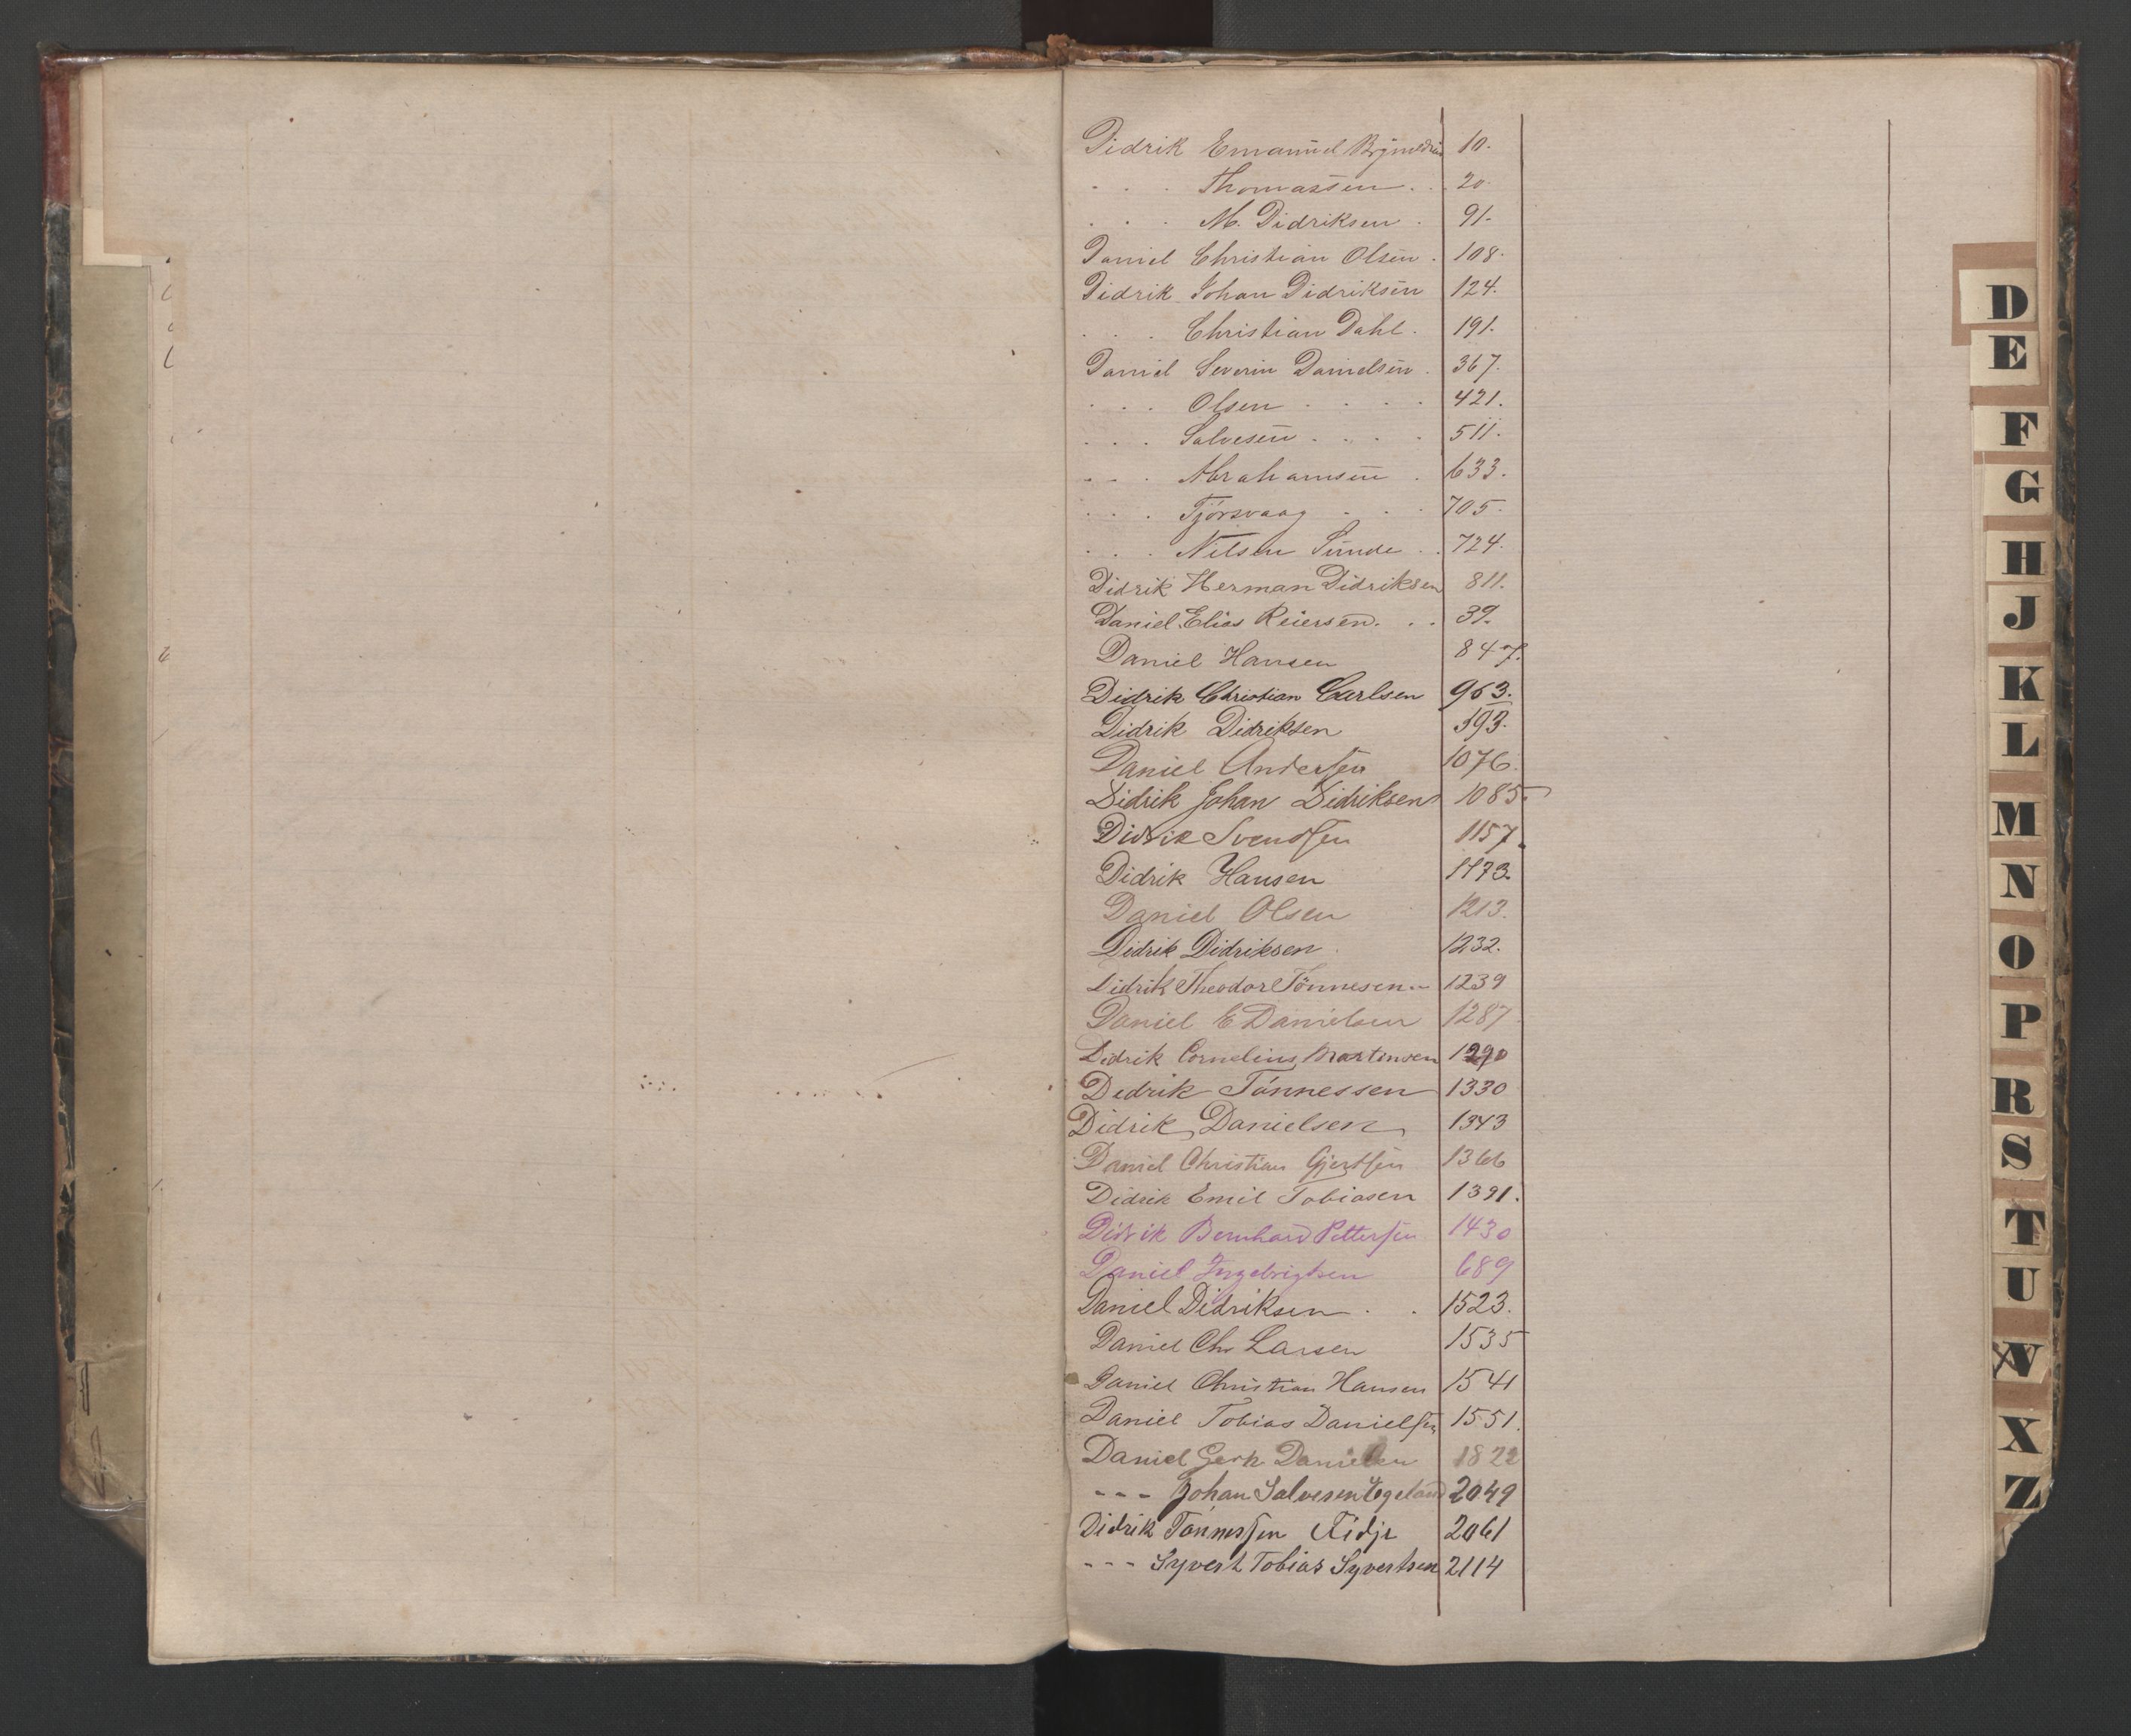 Didrik Emanuel 10.
. . . Thomassen . . 20.
. . . M. Didriksen . 91.
Daniel Christian Olsen . 108.
Didrik Johan Didriksen 124.
. . . Christian Dahl . 191.
Daniel Severin Danielsen . 367.
. . . Olsen . . . . 421.
. . . Salvesen . . . . 511.
. . . Abrahamsen . 633.
. . . Tjörsvaag . . . 705.
. . . Nilsen Sunde . . 724.
Didrik Herman Didriksen 811.
Daniel Elias Reiersen . . . 39.
Daniel Hansen 847.
Didrik Christian Carlsen 963.
Didrik Didriksen 393.
Daniel Anderssen 1076.
Didrik Johan Didriksen 1085.
Didrik Svendssen 1157.
Didrik Hansen 1173.
Daniel Olsen 1213.
Didrik Didriksen . 1232.
Didrik Theodor Tönnesen 1239
Daniel E Danielsen 1287.
Didrik Cornelius Martinsen 1290
Dedrik Tönnessen 1330
Didrik Danielsen 1343
Daniel Christian Gjertssen 1366
Didrik Emil Tobiasen 1391.
Didrik Bernhard Pettersen 1430
Daniel Ingebrigtsen 689
Daniel Didriksen . . 1523.
Daniel Chr Larsen 1535
Daniel Christian Hansen 1541
Daniel Tobias Danielssen 1551.
Daniel Gerh Danielsen 1822
- - - Johan Salvesen Egeland 2049
Didrik Tönnessen 2061
- - - Syvert Tobias Syvertsen 2114
D
E
F
G
H
J
K
L
M
N
O
P
R
S
T
U
V
X
Z